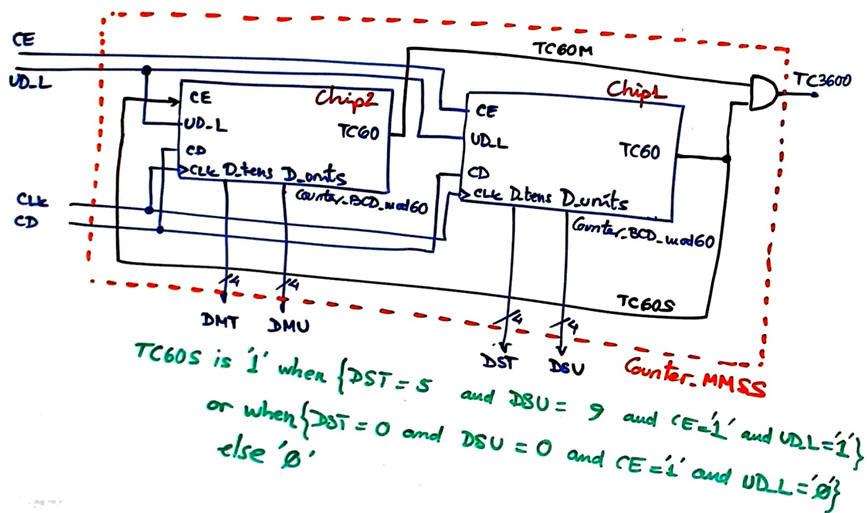 CE
UD_L
TC60M
TC3600
Chip2
CE
UD_L
CD
CLK D_tens D_units
TC60
Counter_BCD_mod60
Chip1
CE
UD_L
CD
CLK D_tens D_units
TC60
Counter_BCD_mod60
CLK
CD
TC60S
4
4
4
4
DMT
DMU
DST
DSU
Counter_MMSS
TC60S is '1' when {DST = 5 and DSU = 9 and CE='1' and UD_L='1'}
or when {DST = 0 and DSU = 0 and CE='1' and UD_L='0'}
else '0'